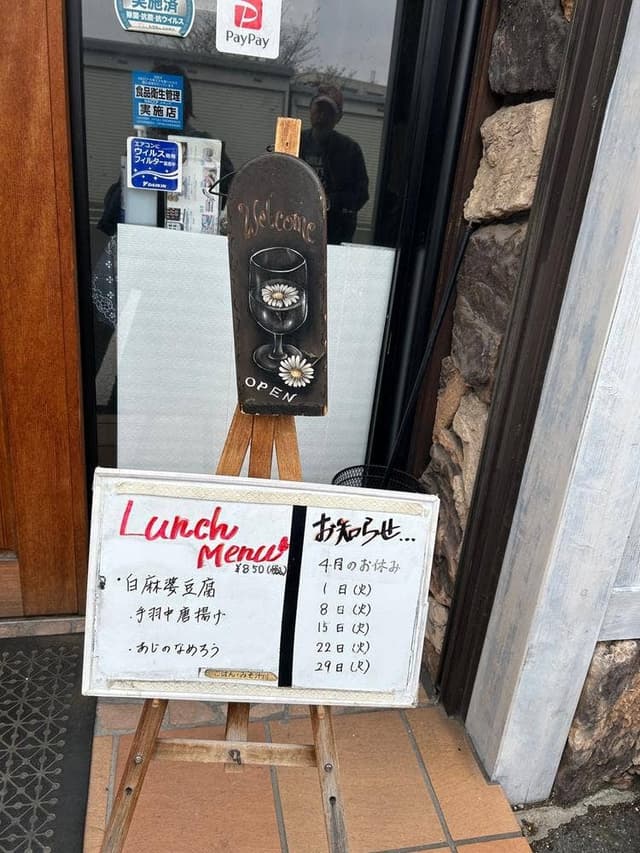 実施済
除菌・抗菌・抗ウイルス
PayPay
食品衛生管理
実施店
エアコンに
ウイルス専用
フィルター
DAIKIN
Welcome
OPEN
Lunch
Menu
¥850(税込)
・白麻婆豆腐
・手羽中唐揚げ
・あじのなめろう
ごはん・みそ汁付
お知らせ...
4月のお休み
1日(火)
8日(火)
15日(火)
22日(火)
29日(火)